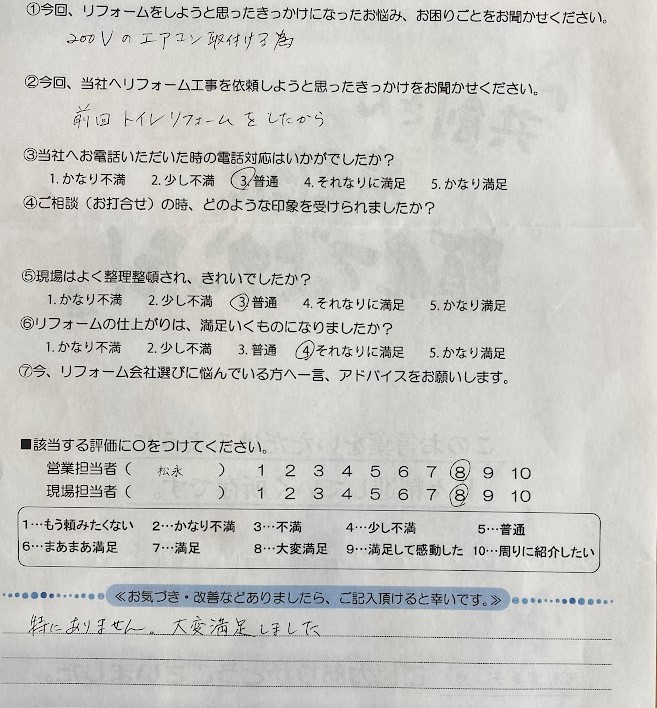 ①今回、リフォームをしようと思ったきっかけになったお悩み、お困りごとをお聞かせください。
200Vのエアコン取付ける為
②今回、当社へリフォーム工事を依頼しようと思ったきっかけをお聞かせください。
前回トイレリフォームをしたから
③当社へお電話いただいた時の電話対応はいかがでしたか？
1.かなり不満 2.少し不満 3.普通 4.それなりに満足 5.かなり満足
④ご相談（お打合せ）の時、どのような印象を受けられましたか？
⑤現場はよく整理整頓され、きれいでしたか？
1.かなり不満 2.少し不満 3.普通 4.それなりに満足 5.かなり満足
⑥リフォームの仕上がりは、満足いくものになりましたか？
1.かなり不満 2.少し不満 3.普通 4.それなりに満足 5.かなり満足
⑦今、リフォーム会社選びに悩んでいる方へ一言、アドバイスをお願いします。
■該当する評価に○をつけてください。
営業担当者（ 松永 ） 1 2 3 4 5 6 7 8 9 10
現場担当者（ ） 1 2 3 4 5 6 7 8 9 10
1…もう頼みたくない 2…かなり不満 3…不満 4…少し不満 5…普通
6…まあまあ満足 7…満足 8…大変満足 9…満足して感動した 10…周りに紹介したい
≪お気づき・改善などありましたら、ご記入頂けると幸いです。≫
特にありません。大変満足しました